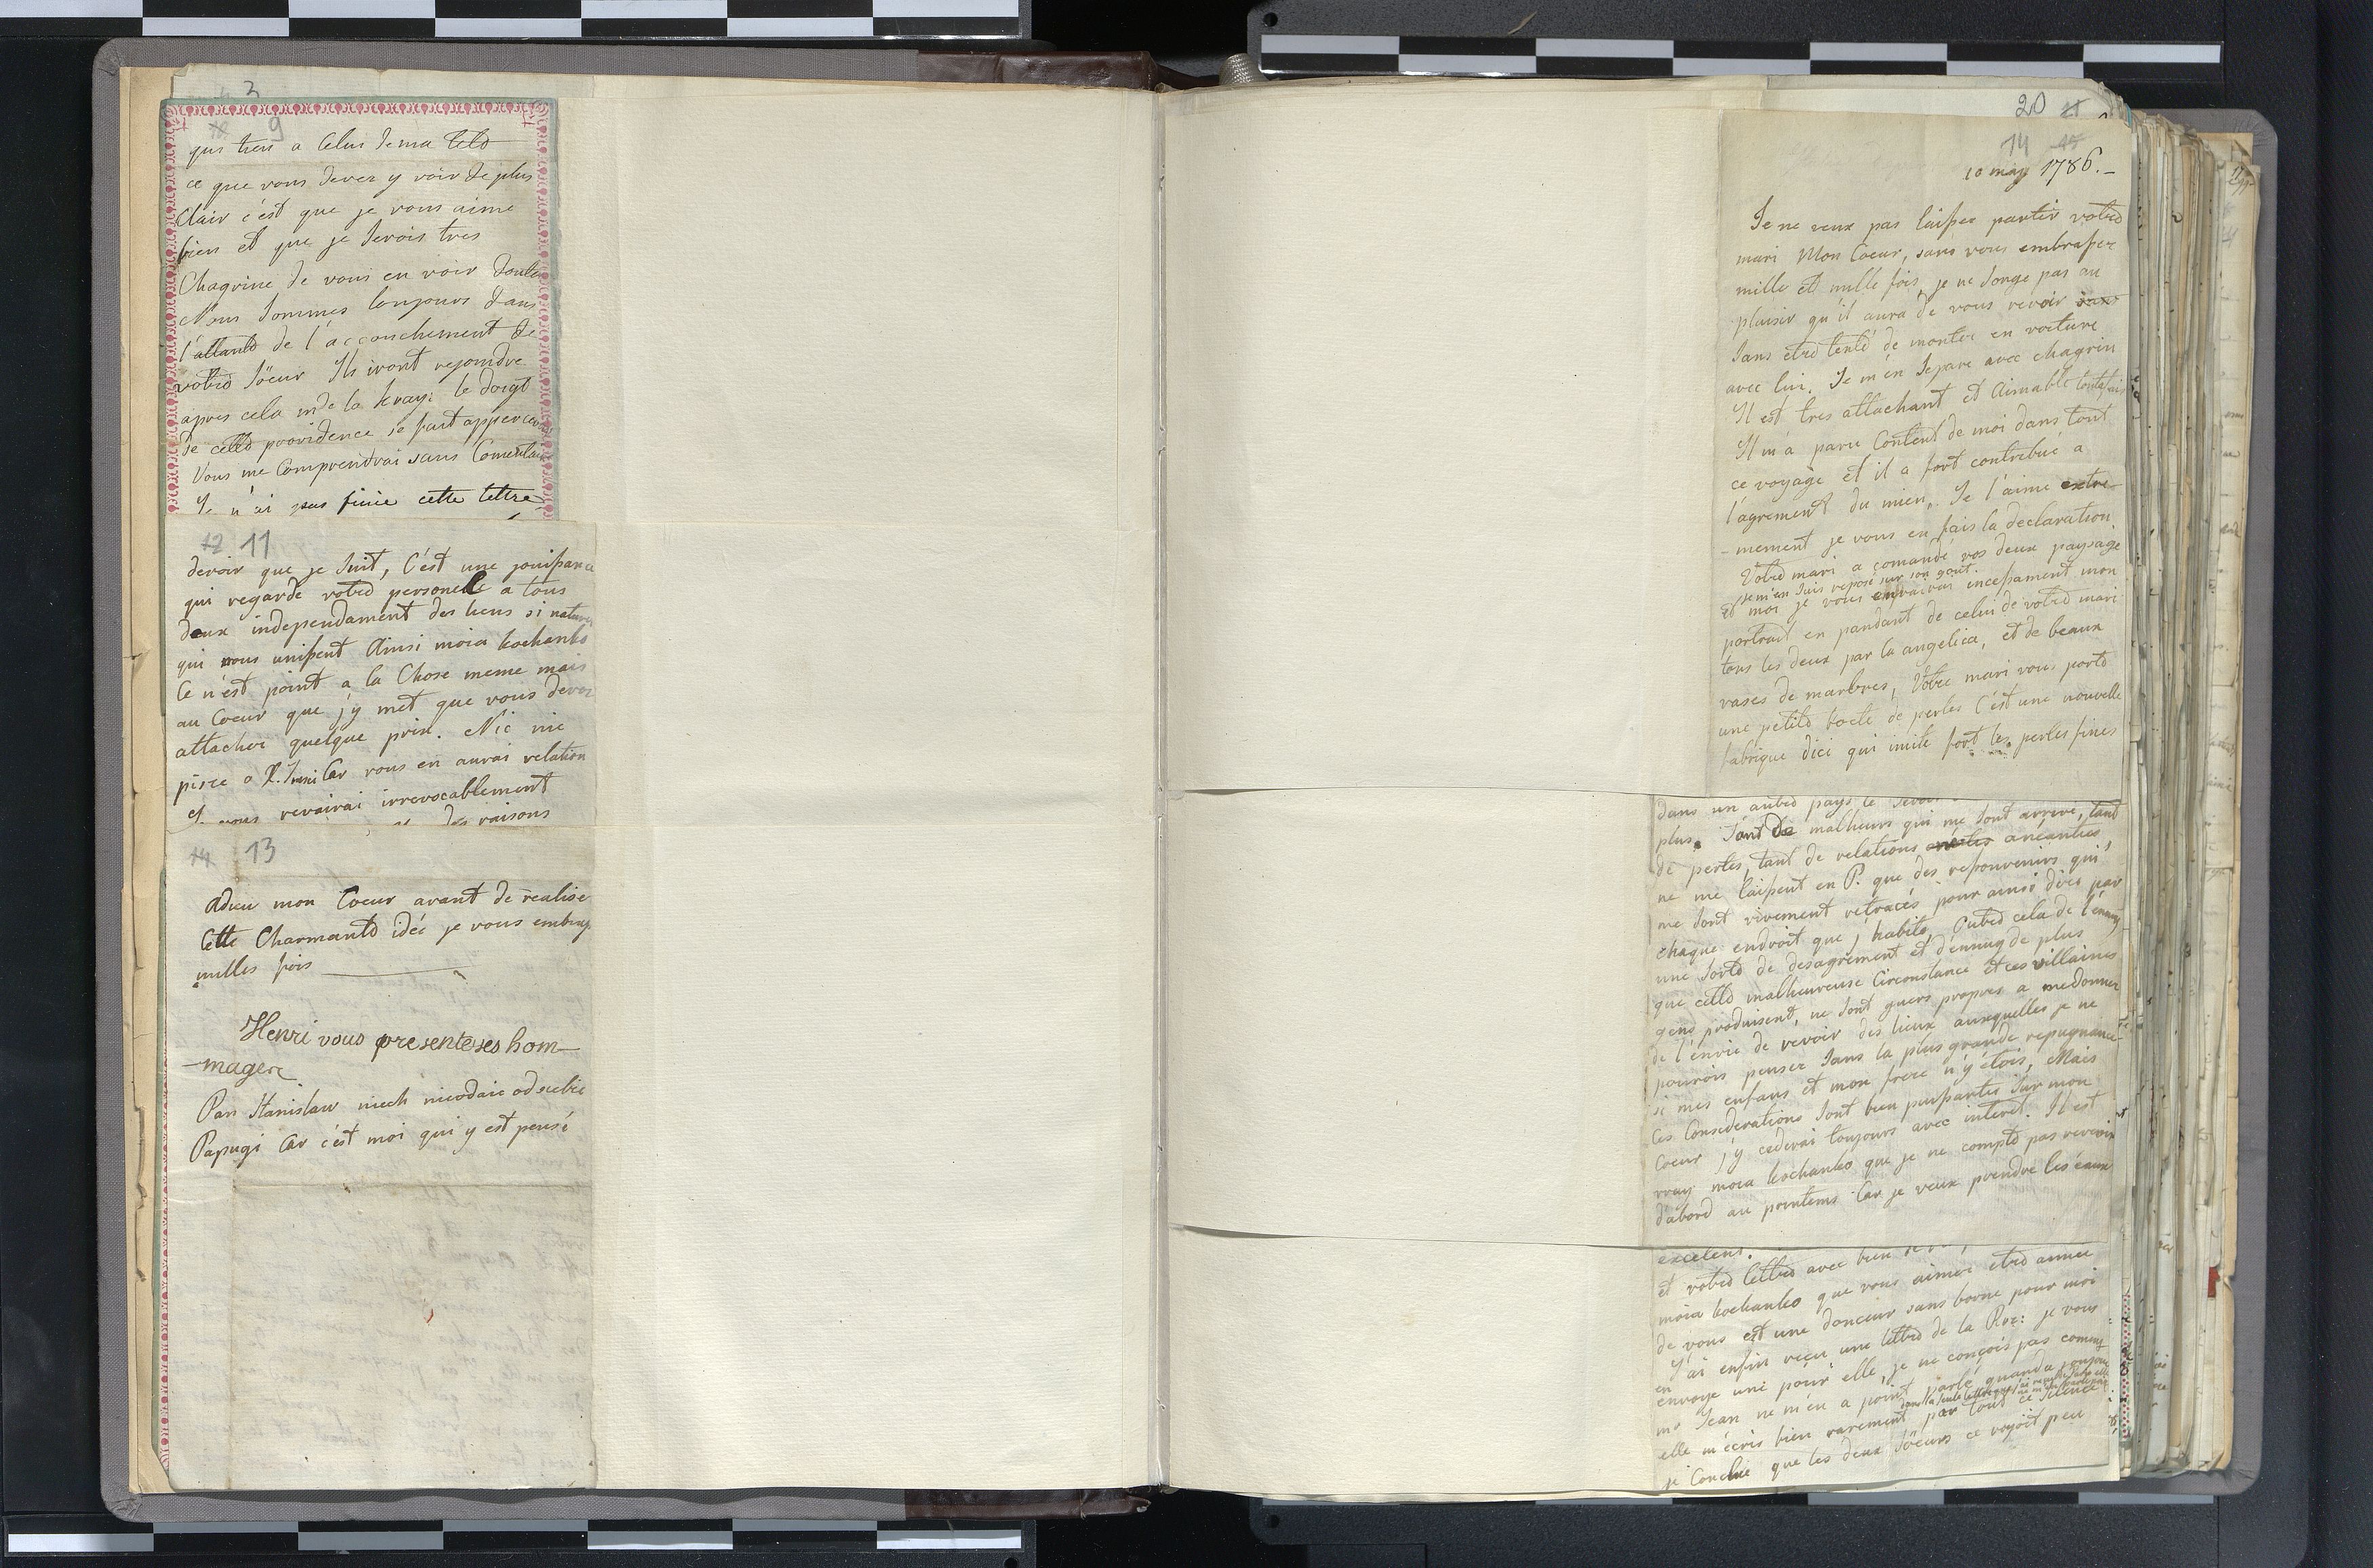 3
10 9
qui tien a Celui de ma tetd
ce que vous devez y voir de plus
Clair c'est que je vous aime
bien et que je serois tres
Chagrine de vous en voir douter
Nous sommes toujours dans
l'attante de l'accouchement de
votre soeur Ils iront rejoindre
apres cela mde la kray: le doigt
de cette providence se fait appercev
Vous me Comprendrai sans Comenta
Je n'ai pas finie cette lettre
12 11
devoir que je suit, C'est une jouissance
qui regarde votre personelle a tous
deux independament des liens si nature
qui nous unissent Ainsi moia kochanko
Ce n'est point a la Chose meme mais
au Coeur que j'y met que vous devez
attacher quelque prix. Nic nie
pisze o Car vous en aurai relation
Et vous revairai irrevocablement
des raisons
14 13
Adieu mon Coeur avant de realise
Cette Charmante idée je vous embras
milles fois
Henri vous presente ses hom-
-mages
Pan Stanislaw niech nieodaie od siebie
Papugi Car c'est moi qui y est pensé
20
14 15
10 may 1786.-
Je ne veux pas laisser partir votre
mari Mon Coeur, sans vous embrasser
mille et mille fois, je ne songe pas au
plaisir qu'il aura de vous revoir
sans etre tenté de monter en voiture
avec lui. Je m'en separe avec chagrin
Il est tres attachant et Aimable toutafais
Il m'a paru Content de moi dans tout
ce voyage et il a fort contribué a
l'agrement du mien. Je l'aime extre-
-mement je vous en fais la declaration
Votre mari a comandé vos deux paysage
je m'en suis reposé sur son gout.
Et moi je vous envairai incessament mon
portrait en pandant de celui de votre mari
tous les deux par la angelica, et de beaux
vases de marbres, Votre mari vous porte
une petite boete de perles C'est une nouvelle
fabrique d'ici qui imite fort les perles fines
dans un autre pays le
plus. Tant de malheurs qui me sont arrivé, tant
de pertes, tant de relations anéanties
ne me laissent en P. que des resouvenirs qui
me sont vivement retracés pour ainsi dire par
chaque endroit que j'habite, Outre cela de l'ennuy
une sorte de desagrement et d'ennuy de plus
que cette malheureuse Circonstance et ces villaines
gens produisent, ne sont guers propres a me donner
de l'envie de revoir des lieux auxquelles je ne
pourois penser sans la plus grande repugnance
si mes enfans et mon frere n'y étois, Mais
Ces Considerations sont bien puissantes sur mon
Coeur j'y cederai toujours avec interet. Il est
vray moia kochanko que je ne compte pas revenir
d'abord au printems Car je veux prendre les eaux
excelent.
et votre lettre avec bien
moia kochanko que vous aimer etre aimée
de vous est une douceur sans borne pour moi
J'ai enfin reçu une lettre de la Roz: je vous
en
envoye une pour elle, je ne conçois pas comme
mr Jean ne m'en a point parlé
elle m'ecris bien rarement par tout ce silence
je Conclue que les deux soeurs ce voyoit peu